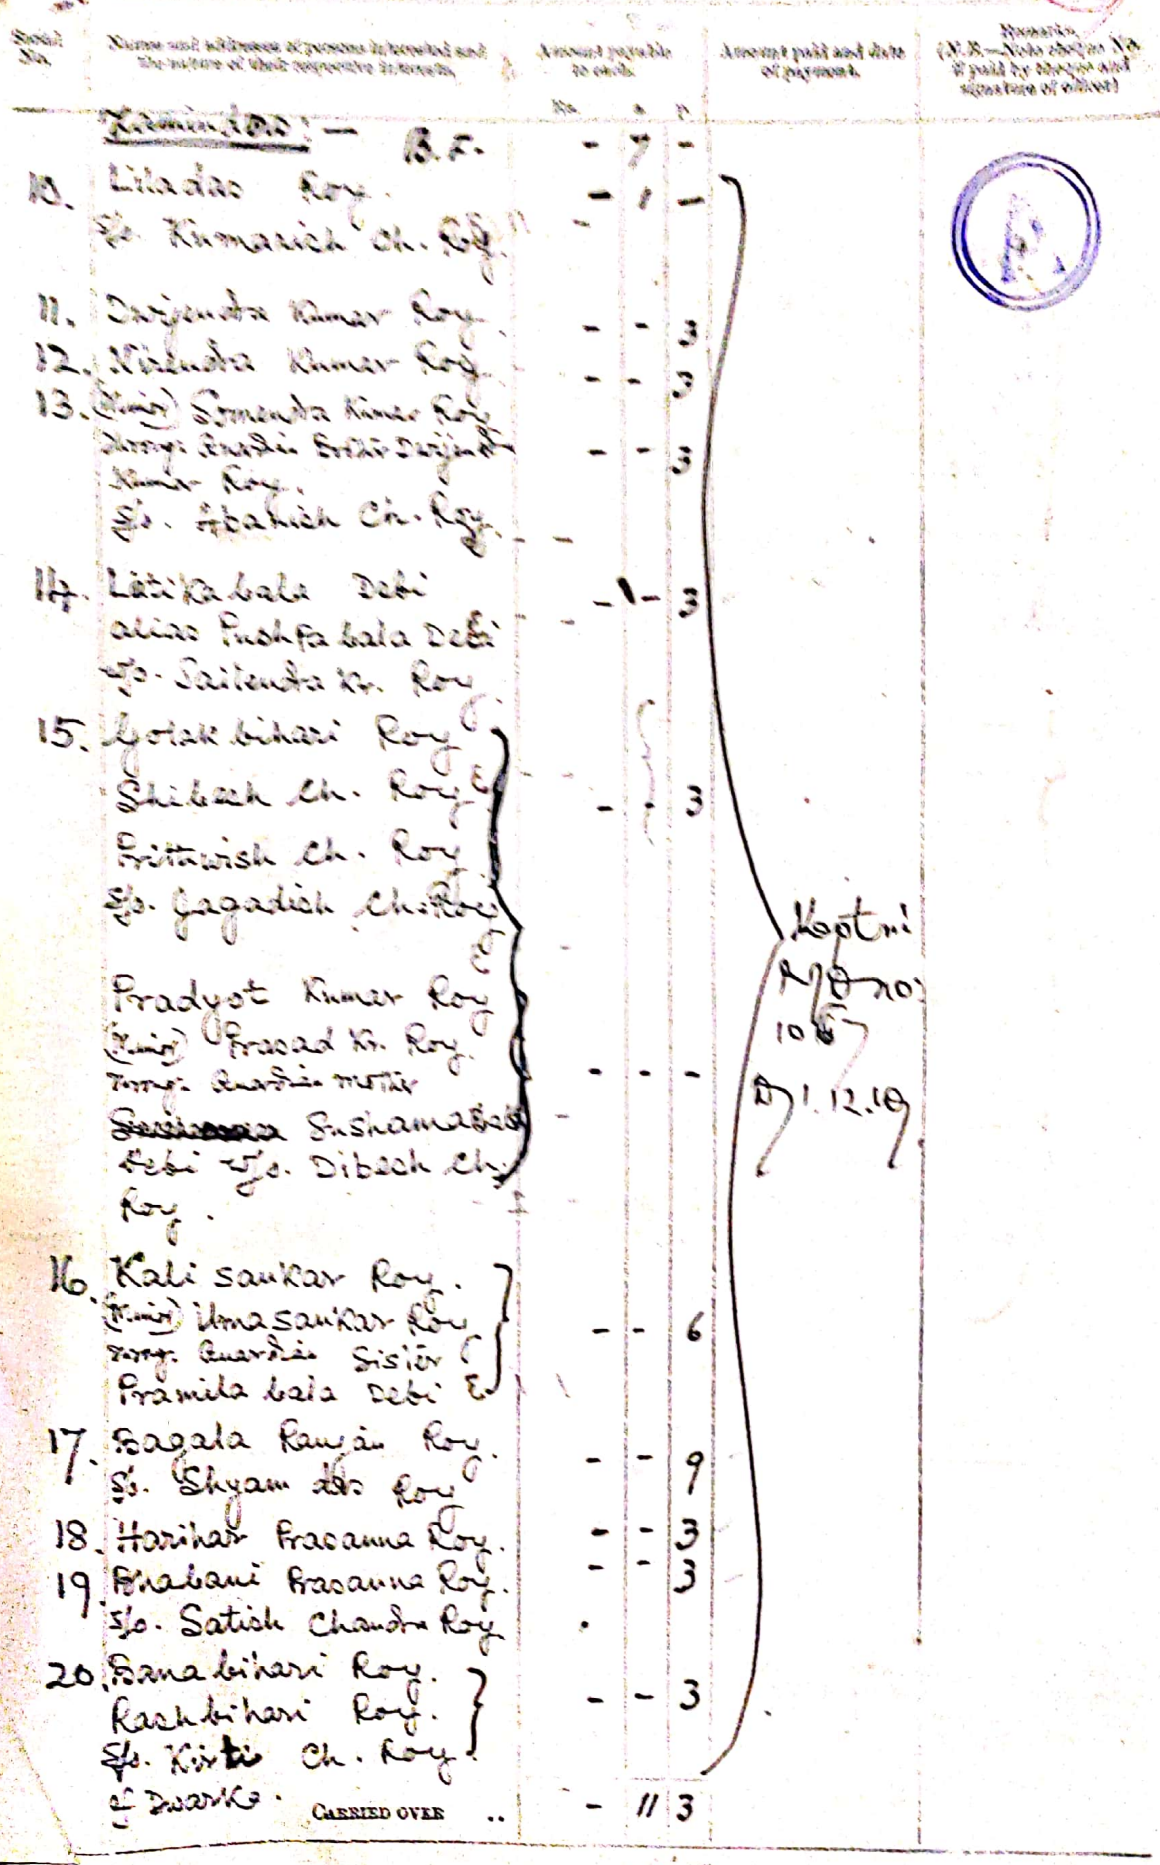 Serial No.
Names and addresses of persons interested and the nature of their respective interests.
Amount payable to each.
Amount paid and date of payment.
Remarks. (N.B.—Note cheque No. if paid by cheque and signature of officer)
Rs. a. p.
B.F. - 7 -
10. Liladas Roy. - 1 -
S/o. Kumarish Ch. Roy.
11. Dwijendra Kumar Roy - - 3
12. Nirendra Kumar Roy. - - 3
13. (Minor) Somendra Kumar Roy
Guardian Brother Dwijendra - - 3
Kumar Roy.
S/o. Abanish Ch. Roy.
14. Latika bala Debi - - 3
alias Pushpa bala Debi
W/o. Sailendra Kr. Roy
15. Golak bihari Roy
Shibesh Ch. Roy - - 3
Prithwish Ch. Roy
S/o. Jagadish Ch. Roy
Pradyot Kumar Roy
(Minor) Prasad Kr. Roy.
Guardian mother - - -
Sushama bala
Debi W/o. Dibesh Ch.
Roy.
16. Kali sankar Roy.
(Minor) Uma sankar Roy - - 6
Guardian Sister
Pramila bala Debi
17. Bagala Ranjan Roy. - - 9
S/o. Shyam das Roy
18. Harihar Prasanna Roy. - - 3
19. Bhabani Prasanna Roy. - - 3
S/o. Satish Chandra Roy
20. Bana bihari Roy.
Rash bihari Roy. - - 3
S/o. Kirti Ch. Roy.
of Dwarka.
CARRIED OVER .. - 11 3